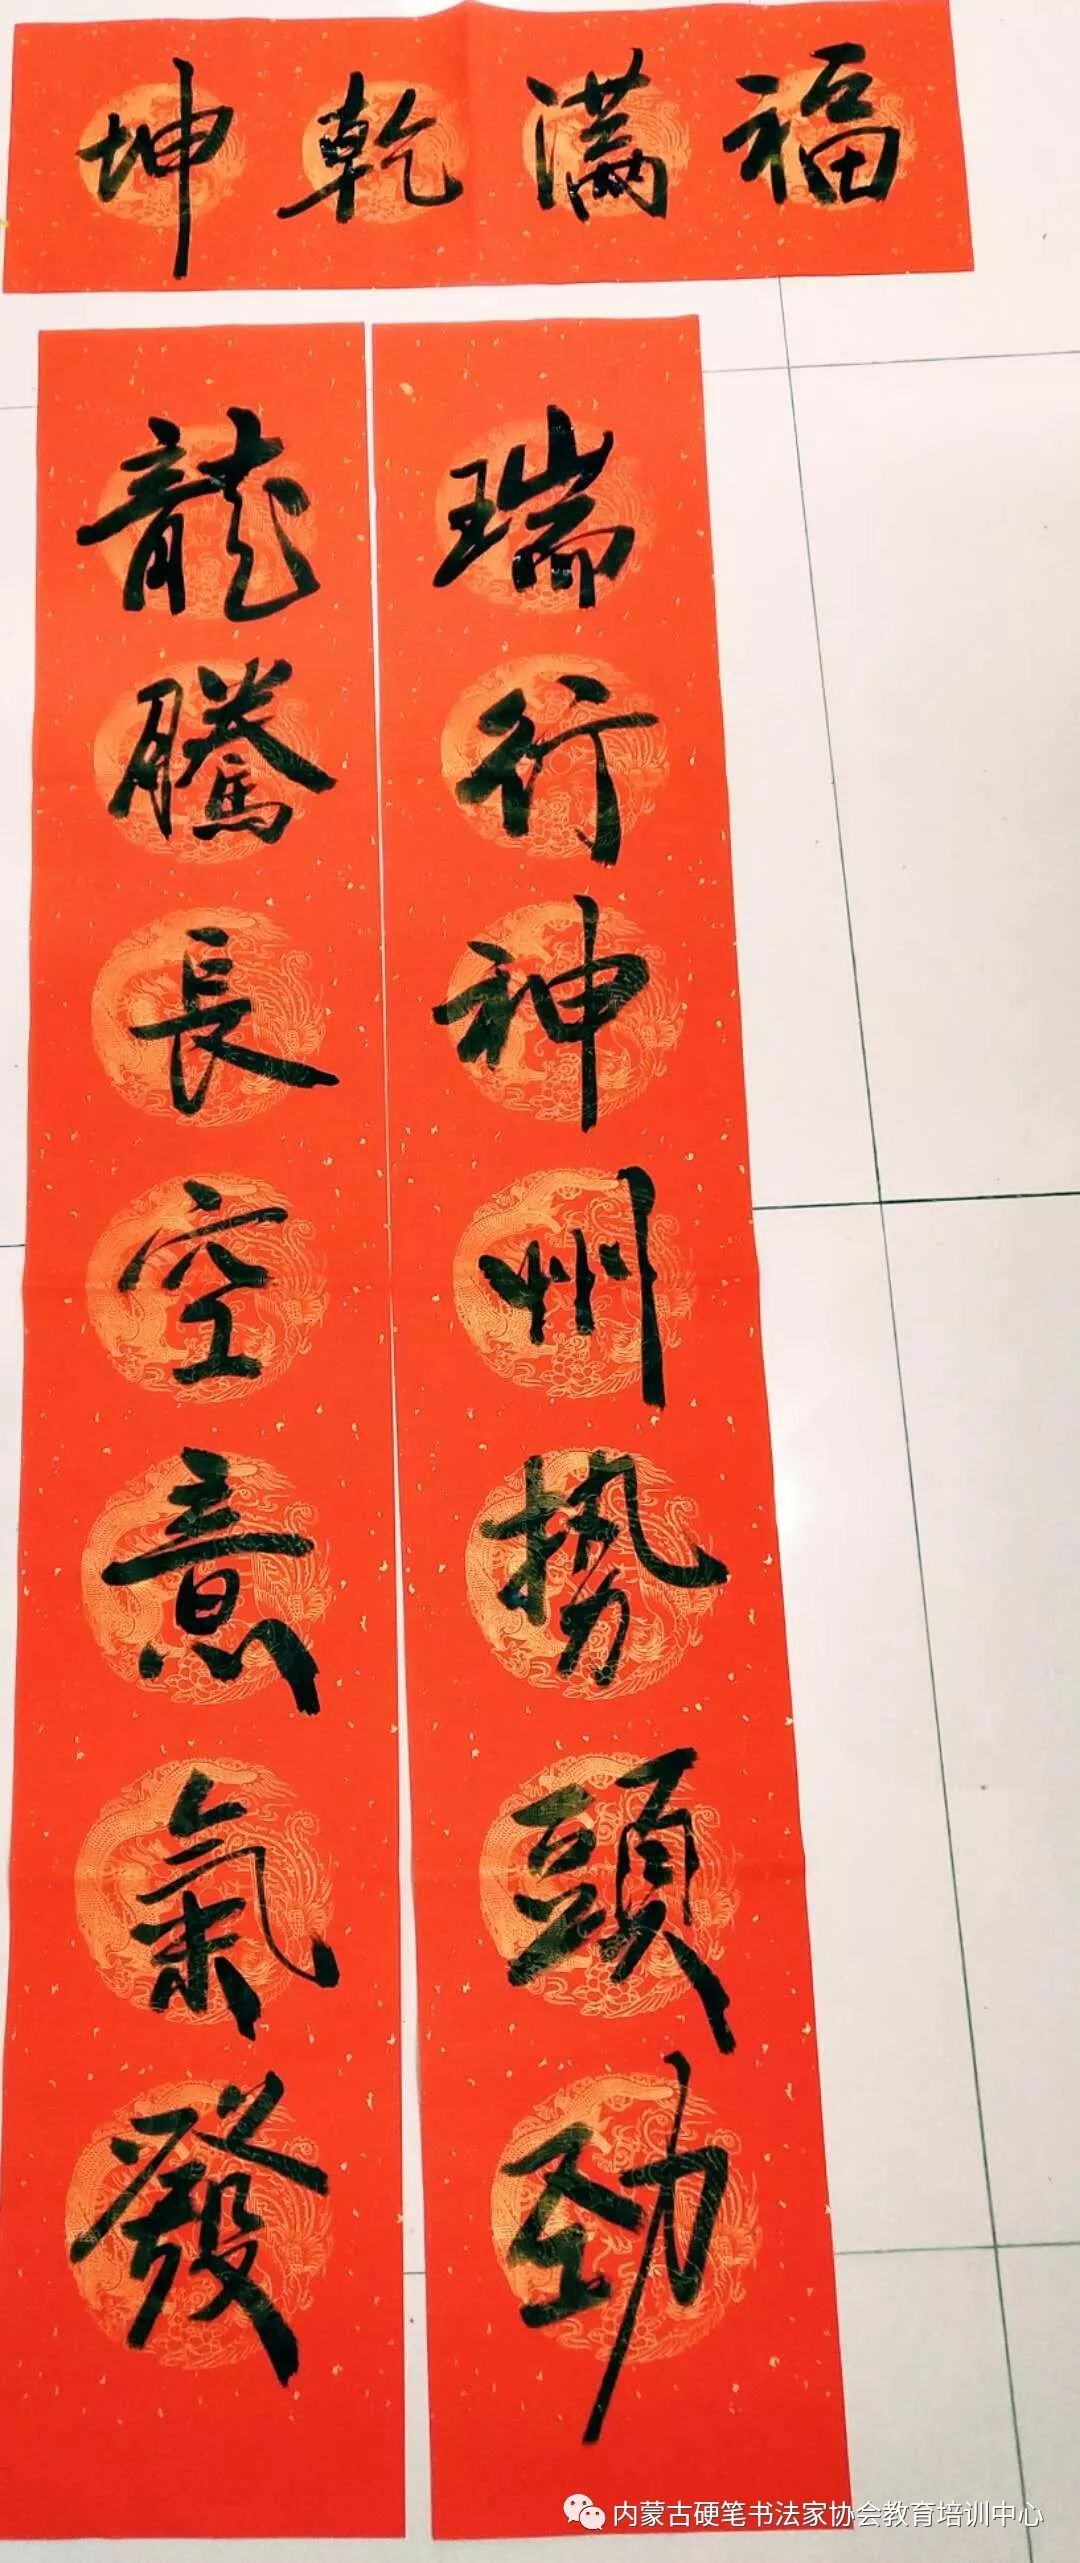 福滿乾坤
瑞行神州势頭劲
龍騰長空意氣發
内蒙古硬笔书法家协会教育培训中心